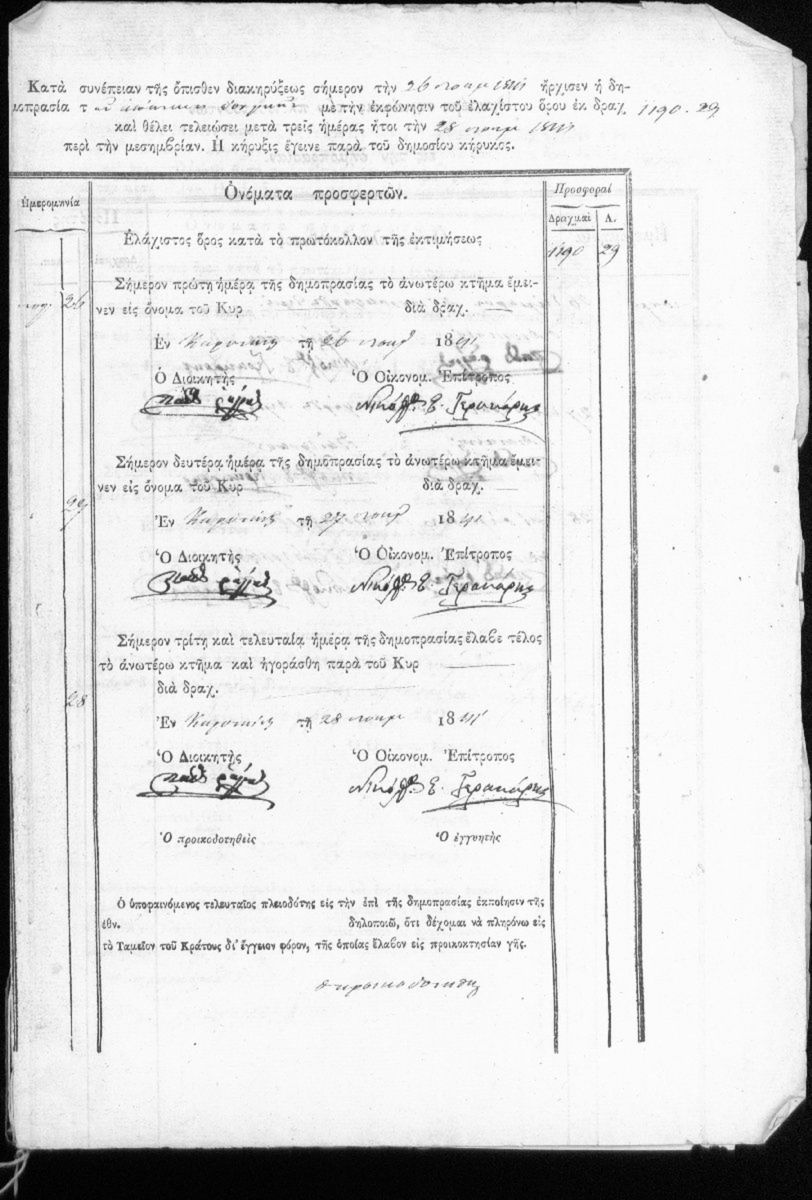 Κατὰ συνέπειαν τῆς ὄπισθεν διακηρύξεως σήμερον τὴν 26 1841 ἤρχισεν ἡ δη-
μοπρασία τ μὲ τὴν ἐκφώνησιν τοῦ ἐλαχίστου ὅρου ἐκ δραχ. 1190.29
καὶ θέλει τελειώσει μετὰ τρεῖς ἡμέρας ἤτοι τὴν 28 1841
περὶ τὴν μεσημβρίαν. Ἡ κήρυξις ἔγεινε παρὰ τοῦ δημοσίου κήρυκος.
Ἡμερομηνία
Ὀνόματα προσφερτῶν.
Προσφοραὶ
Δραχμαὶ Λ.
Ἐλάχιστος ὅρος κατὰ τὸ πρωτόκολλον τῆς ἐκτιμήσεως
1190 29
Σήμερον πρώτη ἡμέρᾳ τῆς δημοπρασίας τὸ ἀνωτέρω κτῆμα ἔμει-
26
νεν εἰς ὄνομα τοῦ Κυρ διὰ δραχ.
Ἐν τῇ 26 1841
Ὁ Διοικητὴς Ὁ Οἰκονομ. Ἐπίτροπος
Γερακάρης
Σήμερον δευτέρα ἡμέρᾳ τῆς δημοπρασίας τὸ ἀνωτέρω κτῆμα ἔμει-
νεν εἰς ὄνομα τοῦ Κυρ διὰ δραχ.
27
Ἐν τῇ 27 1841
Ὁ Διοικητὴς Ὁ Οἰκονομ. Ἐπίτροπος
Γερακάρης
Σήμερον τρίτη καὶ τελευταία ἡμέρᾳ τῆς δημοπρασίας ἔλαβε τέλος
τὸ ἀνωτέρω κτῆμα καὶ ἠγοράσθη παρὰ τοῦ Κυρ
διὰ δραχ.
28
Ἐν τῇ 28 1841
Ὁ Διοικητὴς Ὁ Οἰκονομ. Ἐπίτροπος
Γερακάρης
Ὁ προικοδοτηθεὶς Ὁ ἐγγυητὴς
Ὁ ὑποφαινόμενος τελευταῖος πλειοδότης εἰς τὴν ἐπὶ τῆς δημοπρασίας ἐκποίησιν τῆς
ἐθν. δηλοποιῶ, ὅτι δέχομαι νὰ πληρόνω εἰς
τὸ Ταμεῖον τοῦ Κράτους δι' ἔγγειον φόρον, τῆς ὁποίας ἔλαβον εἰς προικοκτησίαν γῆς.